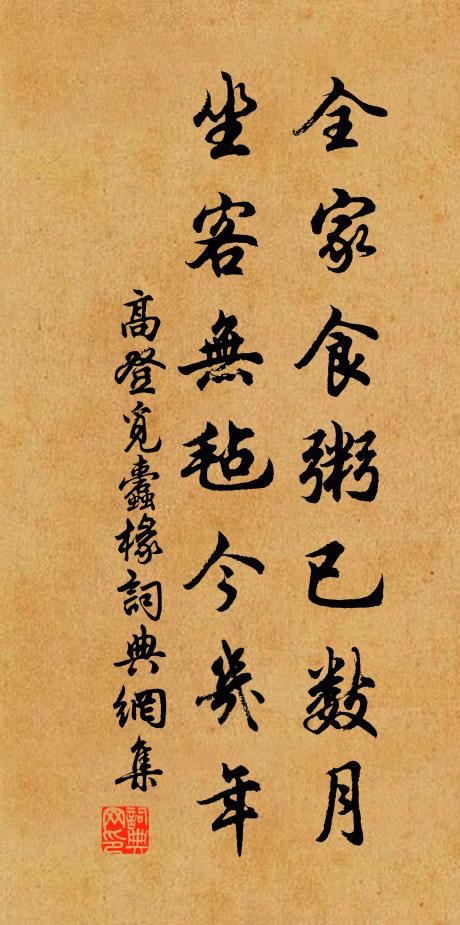 全家食粥已数月
坐客無毡今幾年
高登覓蠹椽詞典網集
詞典网印